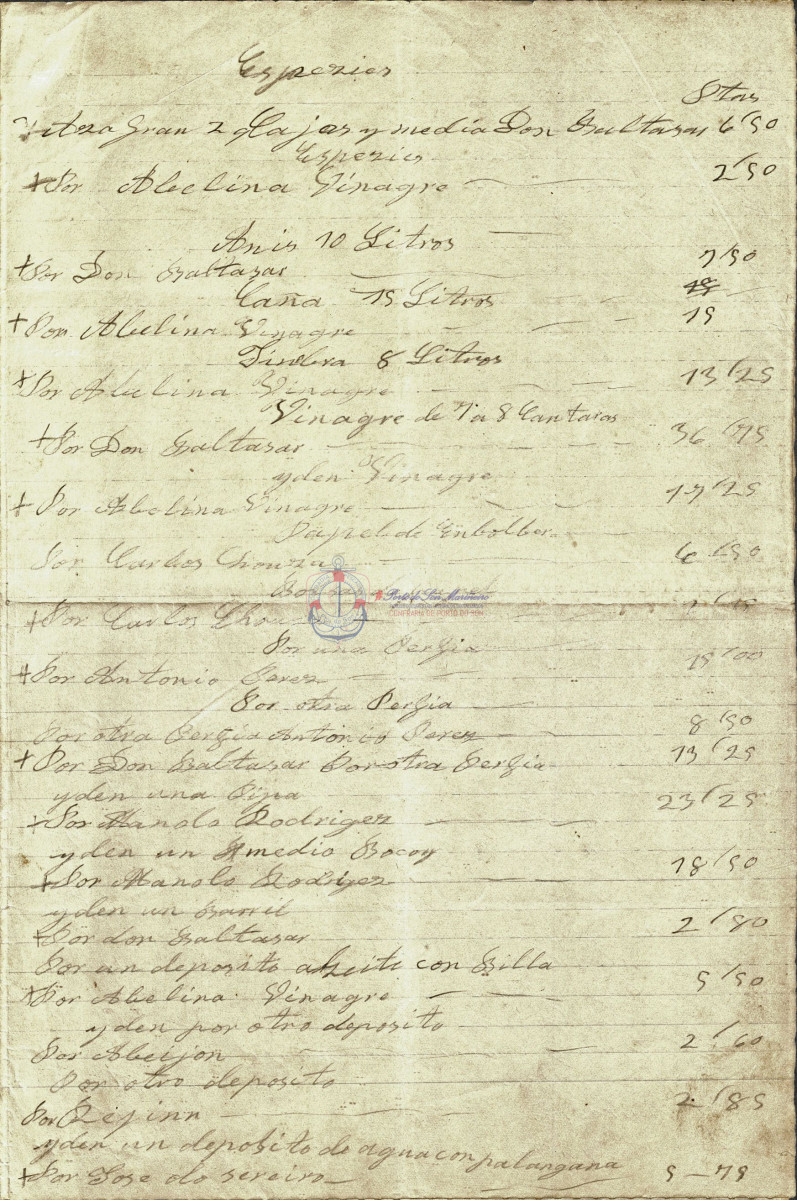 Espezies
Ptas
gran 2 Cajas y media Don Baltasar 6'50
Espezies
+Por Abelina Vinagre 2'50
Anis 10 Litros
+Por Don Baltasar 7'50
Caña 15 Litros 18
+Por Abelina Vinagre 15
Jinebra 8 Litros
+Por Abelina Vinagre 13'25
Vinagre de 7 a 8 Cantaros
+Por Don Baltasar 36'75
yden Vinagre
+Por Abelina Vinagre 17'25
Papel de Enbolber
Por Carlos Chouza 6'50
Porto do Son Marineiro
CONFRARIA DE PORTO DO SON
+Por Carlos
Por una Perfia
+Por Antonio Perez 15'00
Por otra Perfia
Por otra Perfia Antonio Perez 8'50
+Por Don Baltasar Por otra Perfia 13'25
yden una Pipa 23'25
+Por Manolo Rodrigez
yden un medio Bocoy
+Por Manolo Rodrigez 18'50
yden un Barril
+Por don Baltasar 2'80
Por un deposito aZeite con Billa
+Por Abelina Vinagre 5'50
yden por otro deposito
Por Abeijon 2'60
Por otro deposito
Por Rejinn 2'85
yden un deposito de agua con palangana
+Por Jose do sereiro 5-75